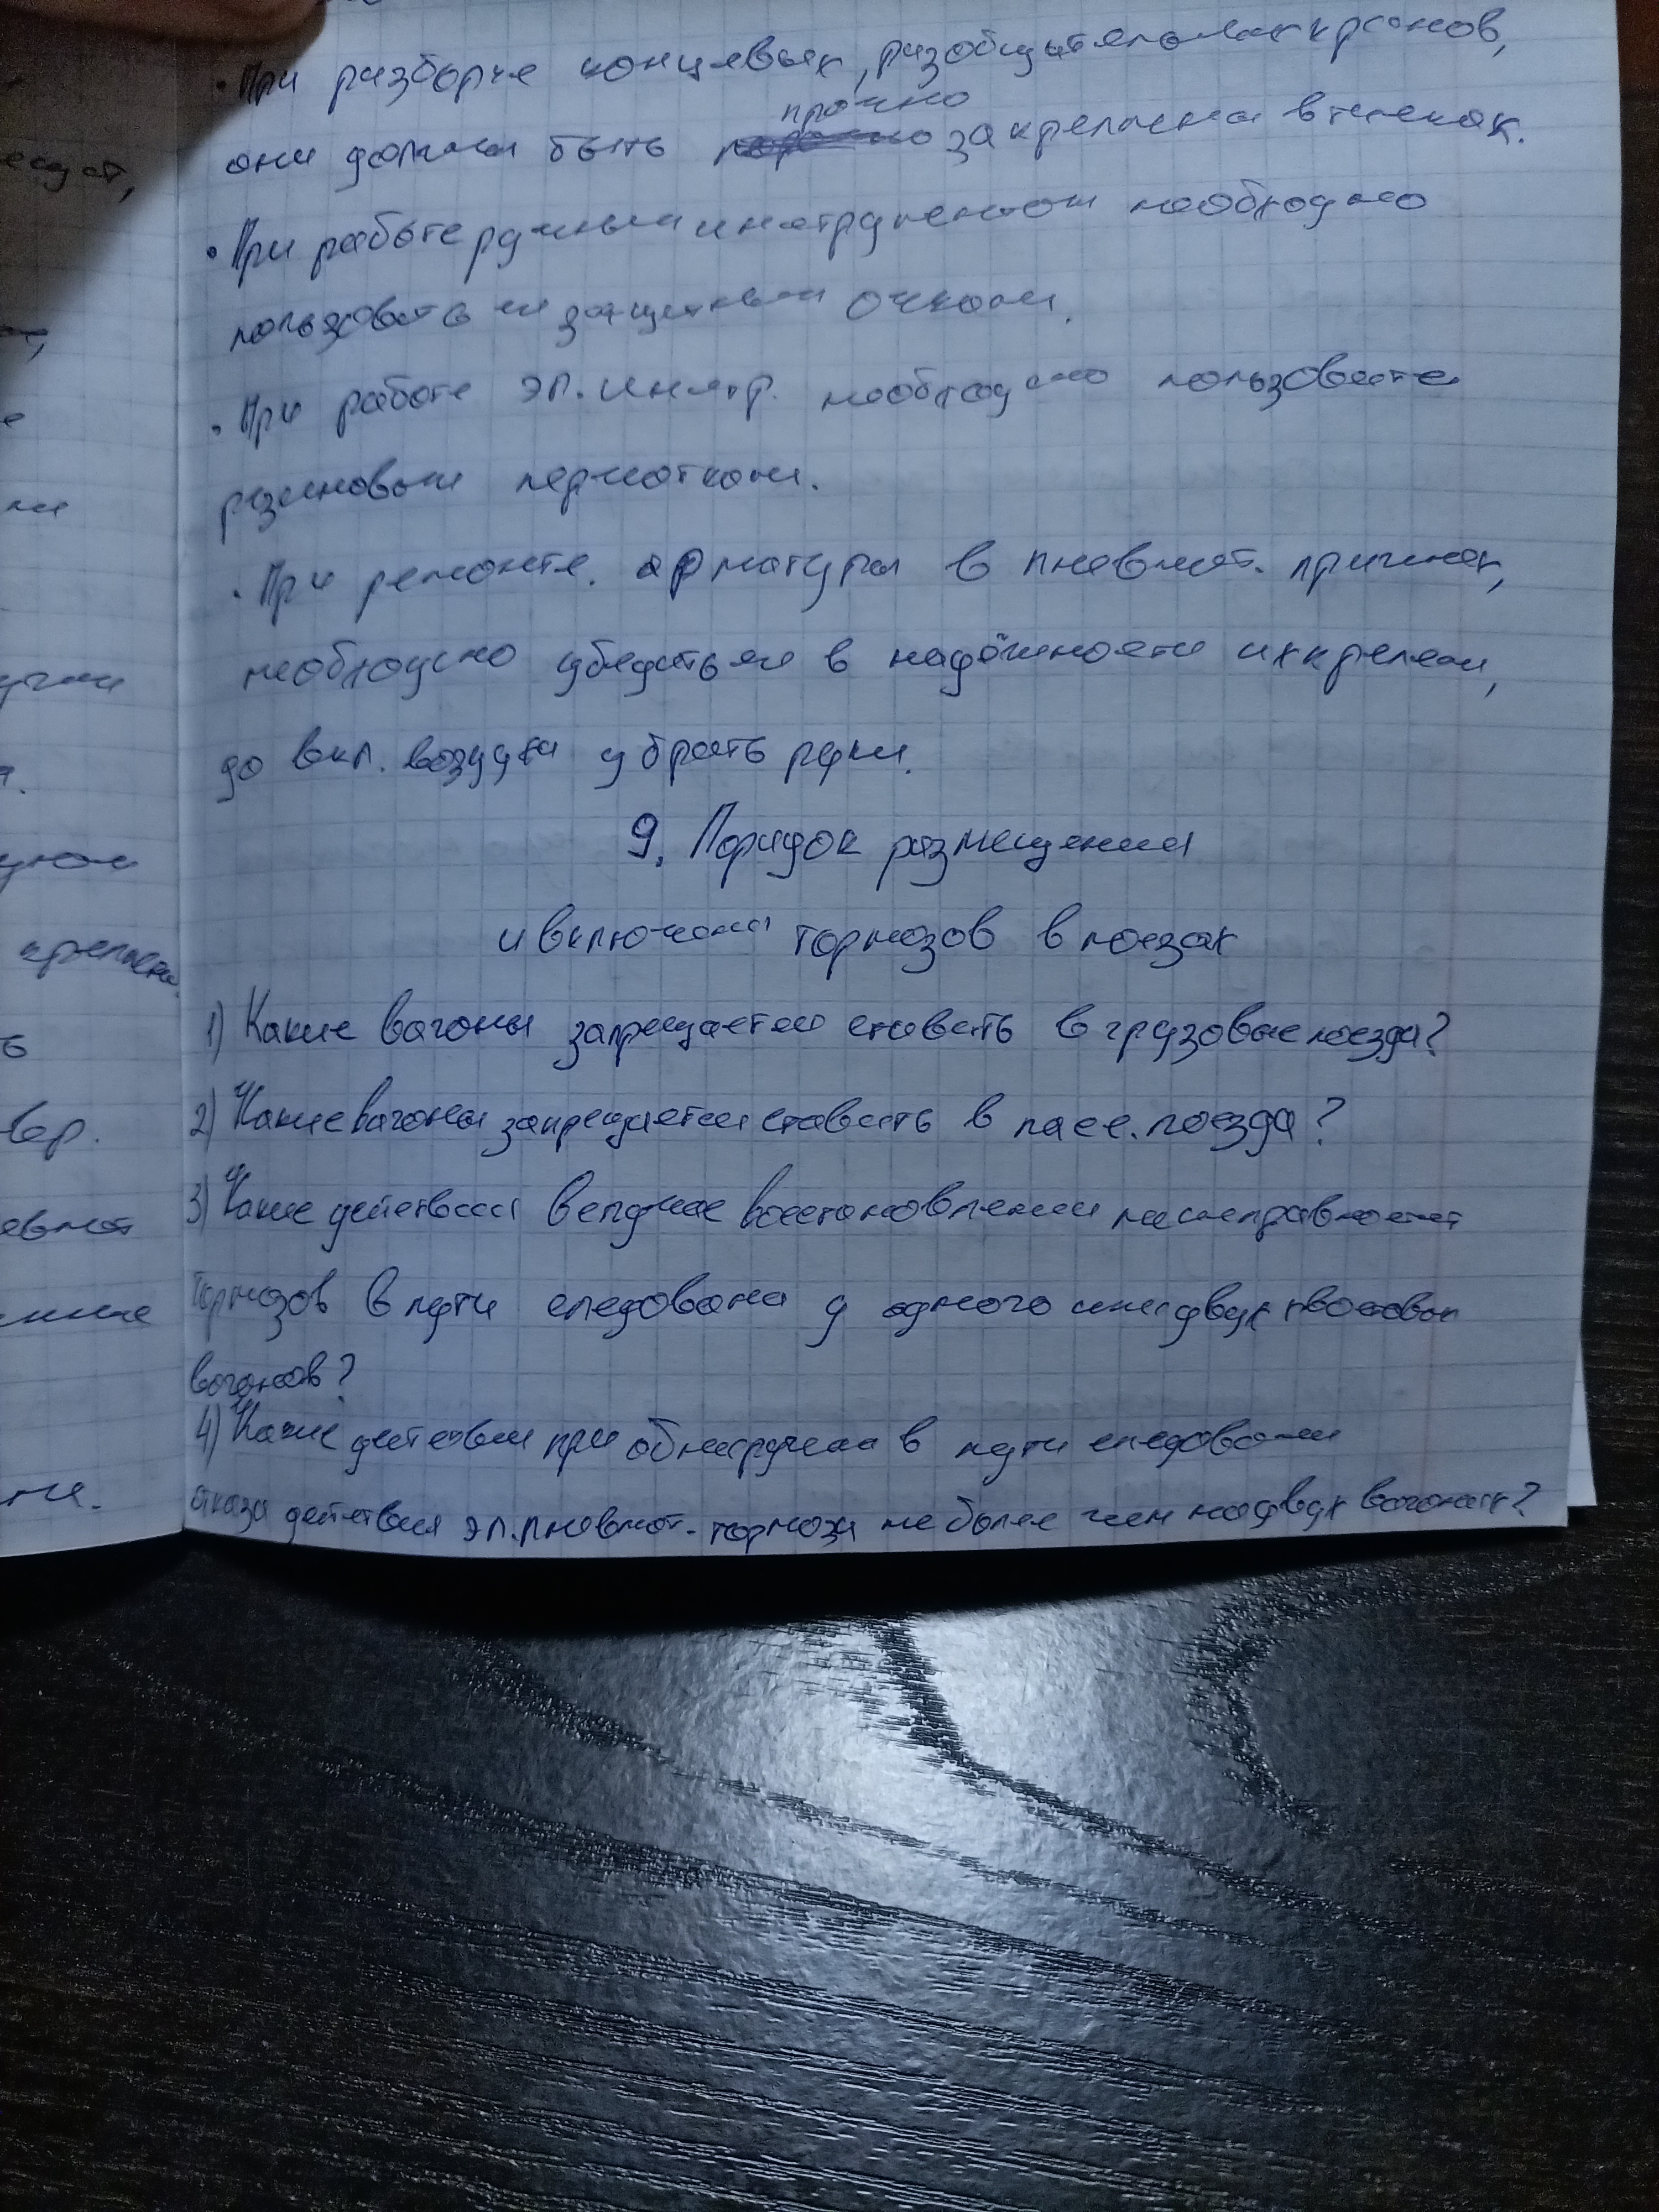 • При разборке концевых, разобщительных кранов,
они должны быть прочно закреплены в тисках.
• При работе ручным инструментом необходимо
пользоваться защитными очками.
• При работе эл. инстр. необходимо пользоваться
резиновыми перчатками.
• При ремонте арматуры в пневмат. прижимах,
необходимо убедиться в надёжности их крепления,
до вкл. воздуха убрать руки.
9. Порядок размещения
и включения тормозов в поездах
1) Какие вагоны запрещается ставить в грузовые поезда?
2) Какие вагоны запрещается ставить в пасс. поезда?
3) Какие действия в случае восстановления неисправности
тормозов в пути следования у одного или двух хвостовых
вагонов?
4) Какие действия при обнаружении в пути следования
отказа действия эл. пневмат. тормоза не более чем на двух вагонах?